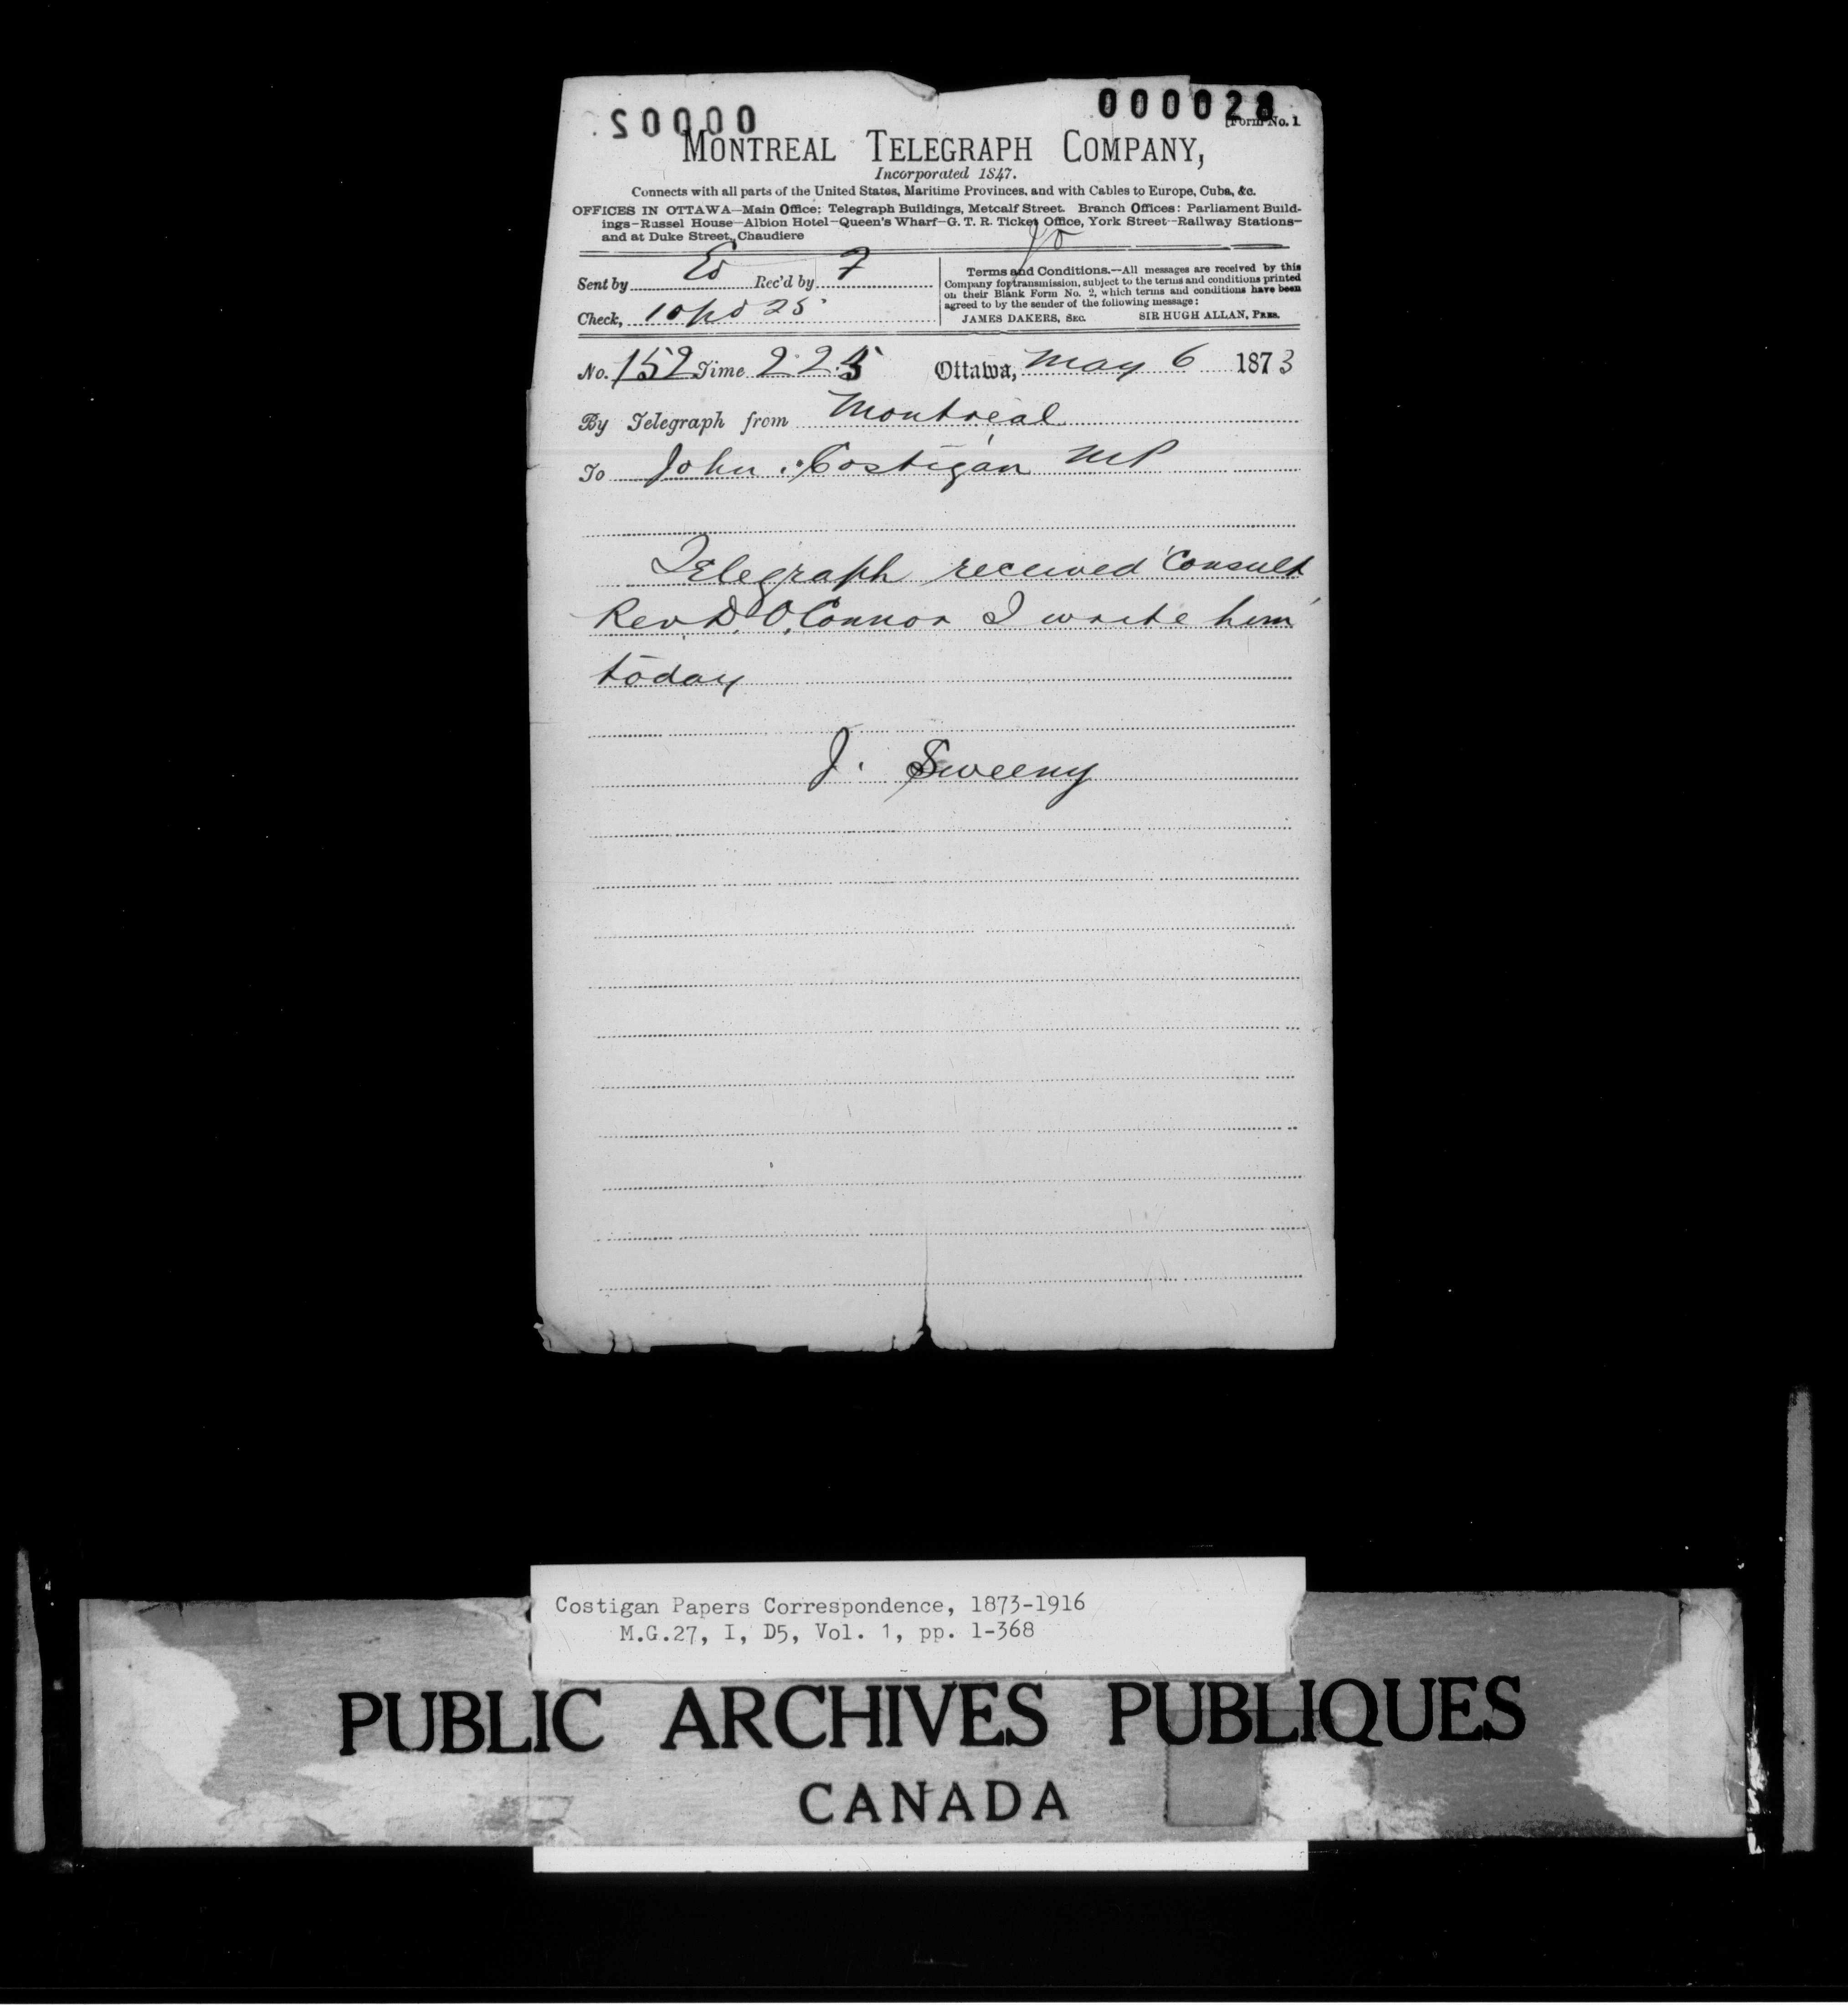 000028
[Form No. 1
MONTREAL TELEGRAPH COMPANY,
Incorporated 1847.
Connects with all parts of the United States, Maritime Provinces, and with Cables to Europe, Cuba, &c.
OFFICES IN OTTAWA—Main Office: Telegraph Buildings, Metcalf Street. Branch Offices: Parliament Build-
ings—Russel House—Albion Hotel—Queen's Wharf—G. T. R. Ticket Office, York Street—Railway Stations—
and at Duke Street, Chaudiere
Sent by Ed Rec'd by F
Check, 10 pd 25
Terms and Conditions.—All messages are received by this
Company for transmission, subject to the terms and conditions printed
on their Blank Form No. 2, which terms and conditions have been
agreed to by the sender of the following message:
JAMES DAKERS, SEC. SIR HUGH ALLAN, PRES.
No. 152 Time 2.25 Ottawa, May 6 1873
By Telegraph from Montreal
To John Costigan MP
Telegraph received Consult
Rev. D. O,Connor I write him
today
J. Sweeny
Costigan Papers Correspondence, 1873-1916
M.G.27, I, D5, Vol. 1, pp. 1-368
PUBLIC ARCHIVES PUBLIQUES
CANADA